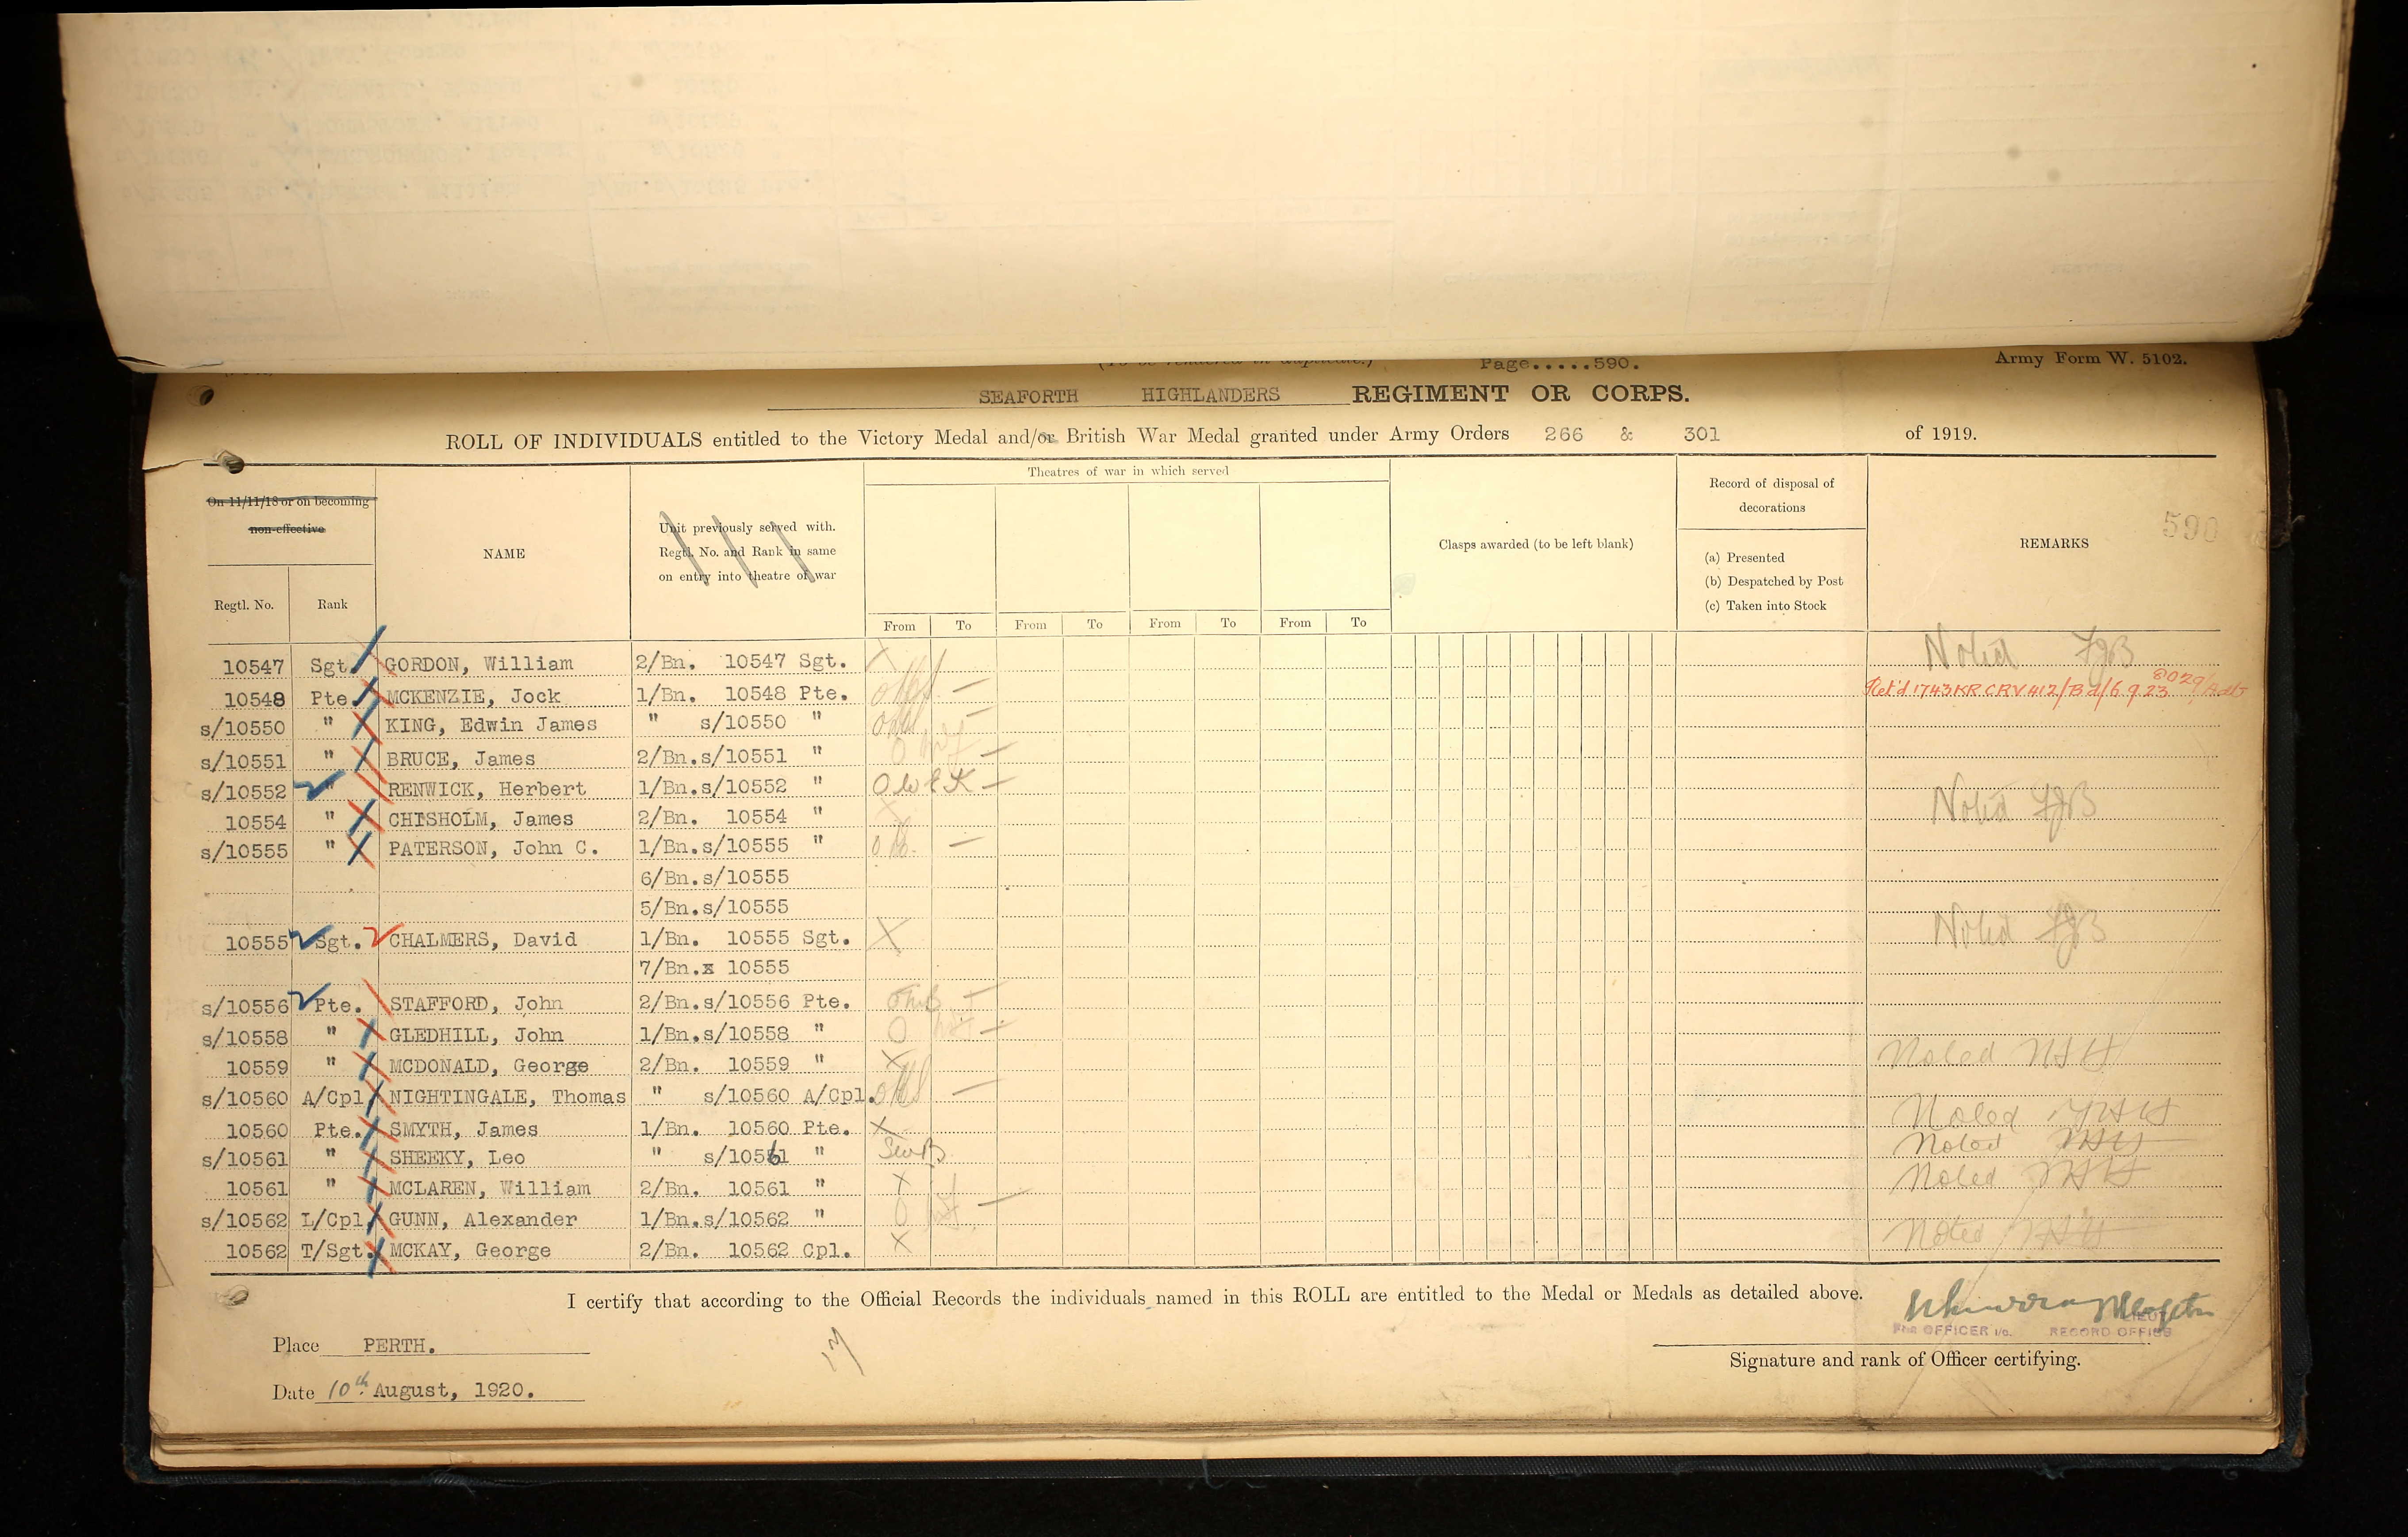 Page.....590.
Army Form W. 5102.
SEAFORTH HIGHLANDERS REGIMENT OR CORPS.
ROLL OF INDIVIDUALS entitled to the Victory Medal and/or British War Medal granted under Army Orders 266 & 301 of 1919.
Theatres of war in which served
On 11/11/18 or on becoming
non-effective
Regtl. No.
Rank
NAME
Unit previously served with.
Regtl. No. and Rank in same
on entry into theatre of war
From To From To From To From To
Clasps awarded (to be left blank)
Record of disposal of
decorations
(a) Presented
(b) Despatched by Post
(c) Taken into Stock
REMARKS
590
10547 Sgt. GORDON, William 2/Bn. 10547 Sgt. X Noted FJB
10548 Pte. MCKENZIE, Jock 1/Bn. 10548 Pte. — Ret'd 1743 KR CRV 412/Bd/6.9.23
s/10550 " KING, Edwin James " s/10550 " —
s/10551 " BRUCE, James 2/Bn.s/10551 " —
s/10552 " RENWICK, Herbert 1/Bn.s/10552 " —
10554 " CHISHOLM, James 2/Bn. 10554 " X Noted FJB
s/10555 " PATERSON, John C. 1/Bn.s/10555 " —
6/Bn.s/10555
5/Bn.s/10555
10555 Sgt. CHALMERS, David 1/Bn. 10555 Sgt. X Noted FJB
7/Bn.x 10555
s/10556 Pte. STAFFORD, John 2/Bn.s/10556 Pte. —
s/10558 " GLEDHILL, John 1/Bn.s/10558 " —
10559 " MCDONALD, George 2/Bn. 10559 " X Noted
s/10560 A/Cpl NIGHTINGALE, Thomas " s/10560 A/Cpl. —
10560 Pte. SMYTH, James 1/Bn. 10560 Pte. X Noted
s/10561 " SHEEKY, Leo " s/10561 " Noted
10561 " MCLAREN, William 2/Bn. 10561 " X Noted
s/10562 L/Cpl GUNN, Alexander 1/Bn.s/10562 " —
10562 T/Sgt. MCKAY, George 2/Bn. 10562 Cpl. X Noted
I certify that according to the Official Records the individuals named in this ROLL are entitled to the Medal or Medals as detailed above.
For OFFICER i/c. RECORD OFFICE
Place PERTH.
Signature and rank of Officer certifying.
Date 10th August, 1920.